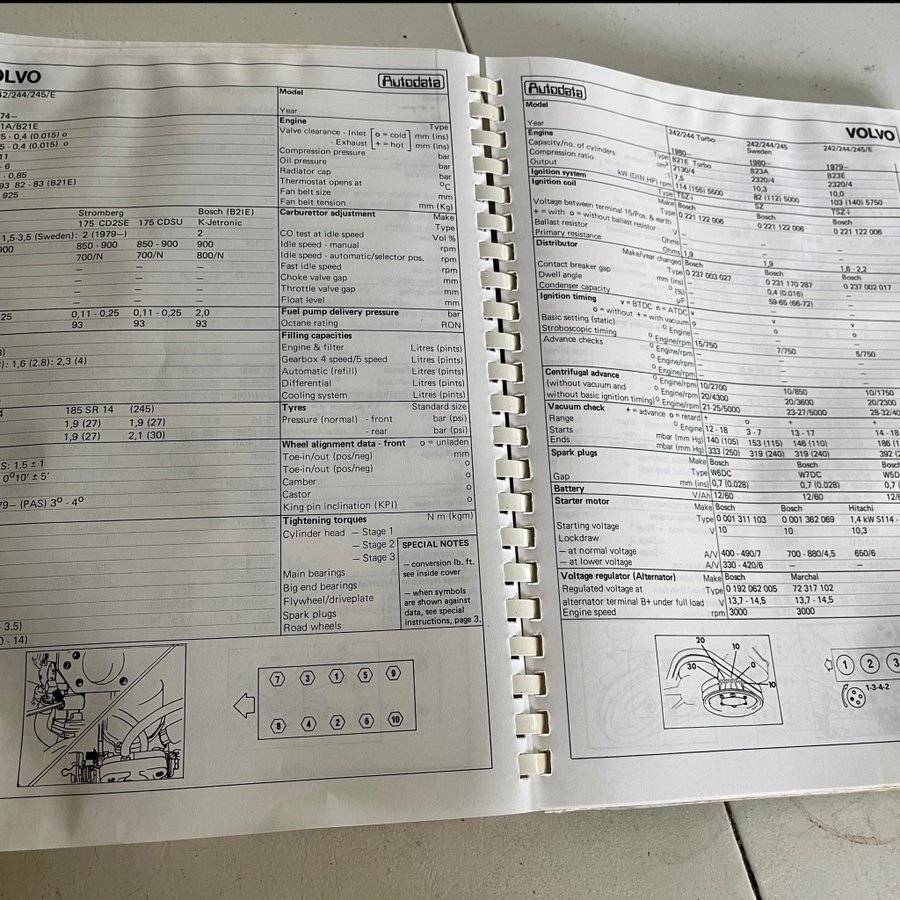 OLVO
Autodata
42/244/245/E
Model
74—
Year
1A/B21E
Engine Type
5 - 0,4 (0.015) o
Valve clearance - Inlet o = cold mm (ins)
5 - 0,4 (0.015) o
- Exhaust + = hot mm (ins)
11
Compression pressure bar
- 6
Oil pressure bar
- 0,85
Radiator cap bar
93 82 - 83 (B21E)
Thermostat opens at °C
925
Fan belt size mm
Fan belt tension mm (Kg)
Stromberg Bosch (B2IE)
Carburettor adjustment Make
175 CD2SE 175 CDSU K-Jetronic
Type
1,5-3,5 (Sweden): 2 (1979—) 2
CO test at idle speed Vol %
900 850 - 900 850 - 900 900
Idle speed - manual rpm
700/N 700/N 800/N
Idle speed - automatic/selector pos. rpm
— — —
Fast idle speed rpm
— — —
Choke valve gap mm
— — —
Throttle valve gap mm
— — —
Float level mm
25 0,11 - 0,25 0,11 - 0,25 2,0
Fuel pump delivery pressure bar
93 93 93
Octane rating RON
Filling capacities
Engine & filter Litres (pints)
): 1,6 (2.8): 2,3 (4)
Gearbox 4 speed/5 speed Litres (pints)
Automatic (refill) Litres (pints)
Differential Litres (pints)
Cooling system Litres (pints)
4 185 SR 14 (245)
Tyres Standard size
1,9 (27) 1,9 (27)
Pressure (normal) - front bar (psi)
1,9 (27) 2,1 (30)
- rear bar (psi)
Wheel alignment data - front o = unladen
S: 1.5 ± 1
Toe-in/out (pos/neg) mm
0°10' ± 5'
Toe-in/out (pos/neg) o
Camber o
79— (PAS) 3° - 4°
Castor o
King pin inclination (KPI) o
Tightening torques N m (kgm)
Cylinder head — Stage 1
— Stage 2
— Stage 3
SPECIAL NOTES
— conversion lb. ft.
see inside cover
— when symbols
are shown against
data, see special
instructions, page 3.
Main bearings
Big end bearings
Flywheel/driveplate
Spark plugs
- 3.5)
Road wheels
0 - 14)
7 3 1 5 9
8 4 2 6 10
Autodata
VOLVO
Model 242/244 Turbo 242/244/245 242/244/245/E
Sweden
Year 1980— 1980— 1979—
Engine Type B21E Turbo B23A B23E
Capacity/no. of cylinders cm³ 2130/4 2320/4 2320/4
Compression ratio :1 7,5 10,3 10,0
Output kW (DIN HP) rpm 114 (155) 5500 82 (112) 5000 103 (140) 5750
Ignition system Type TSZ-i SZ TSZ-i
Ignition coil Make Bosch Bosch Bosch
Type 0 221 122 006 0 221 122 006 0 221 122 006
Voltage between terminal 15/Pos. & earth
+ = with o = without ballast resistor V
Ballast resistor Ohms
Primary resistance Ohms 1,9 1,9 1,6 - 2,2
Distributor Make/year changed Bosch Bosch Bosch
Type 0 237 003 027 0 231 170 287 0 237 002 017
Contact breaker gap mm (ins) — 0,4 (0.016) —
Dwell angle ° (%) — 59-65 (66-72) —
Condenser capacity µF
Ignition timing v = BTDC n = ATDC v v v
o = without + = with vacuum o o o
Basic setting (static) ° Engine — — —
Stroboscopic timing ° Engine/rpm 15/750 7/750 5/750
Advance checks ° Engine/rpm — — —
° Engine/rpm — — —
° Engine/rpm — — —
Centrifugal advance ° Engine/rpm 10/2700 10/850 10/1750
(without vacuum and ° Engine/rpm 20/4300 20/3600 20/2300
without basic ignition timing) ° Engine/rpm 21-25/5000 23-27/5000 28-32/40
Vacuum check + = advance o = retard + o + +
Range ° Engine 12 - 18 3 - 7 13 - 17 14 - 18
Starts mbar (mm Hg) 140 (105) 153 (115) 146 (110) 186 (1
Ends mbar (mm Hg) 333 (250) 319 (240) 319 (240) 392 (2
Spark plugs Make Bosch Bosch Bosch
Type W6DC W7DC W5D
Gap mm (ins) 0,7 (0.028) 0,7 (0.028) 0,7 (
Battery V/Ah 12/60 12/60 12/6
Starter motor Make Bosch Bosch Hitachi
Type 0 001 311 103 0 001 362 069 1,4 kW S114 -
Starting voltage V 10 10 10,3
Lockdraw
— at normal voltage A/V 400 - 490/7 700 - 880/4,5 650/6
— at lower voltage A/V 330 - 420/6 — —
Voltage regulator (Alternator) Make Bosch Marchal
Regulated voltage at Type 0 192 062 005 72 317 102
alternator terminal B+ under full load V 13,7 - 14,5 13,7 - 14,5
Engine speed rpm 3000 3000
20
10
30 0
10
1 2 3
1-3-4-2